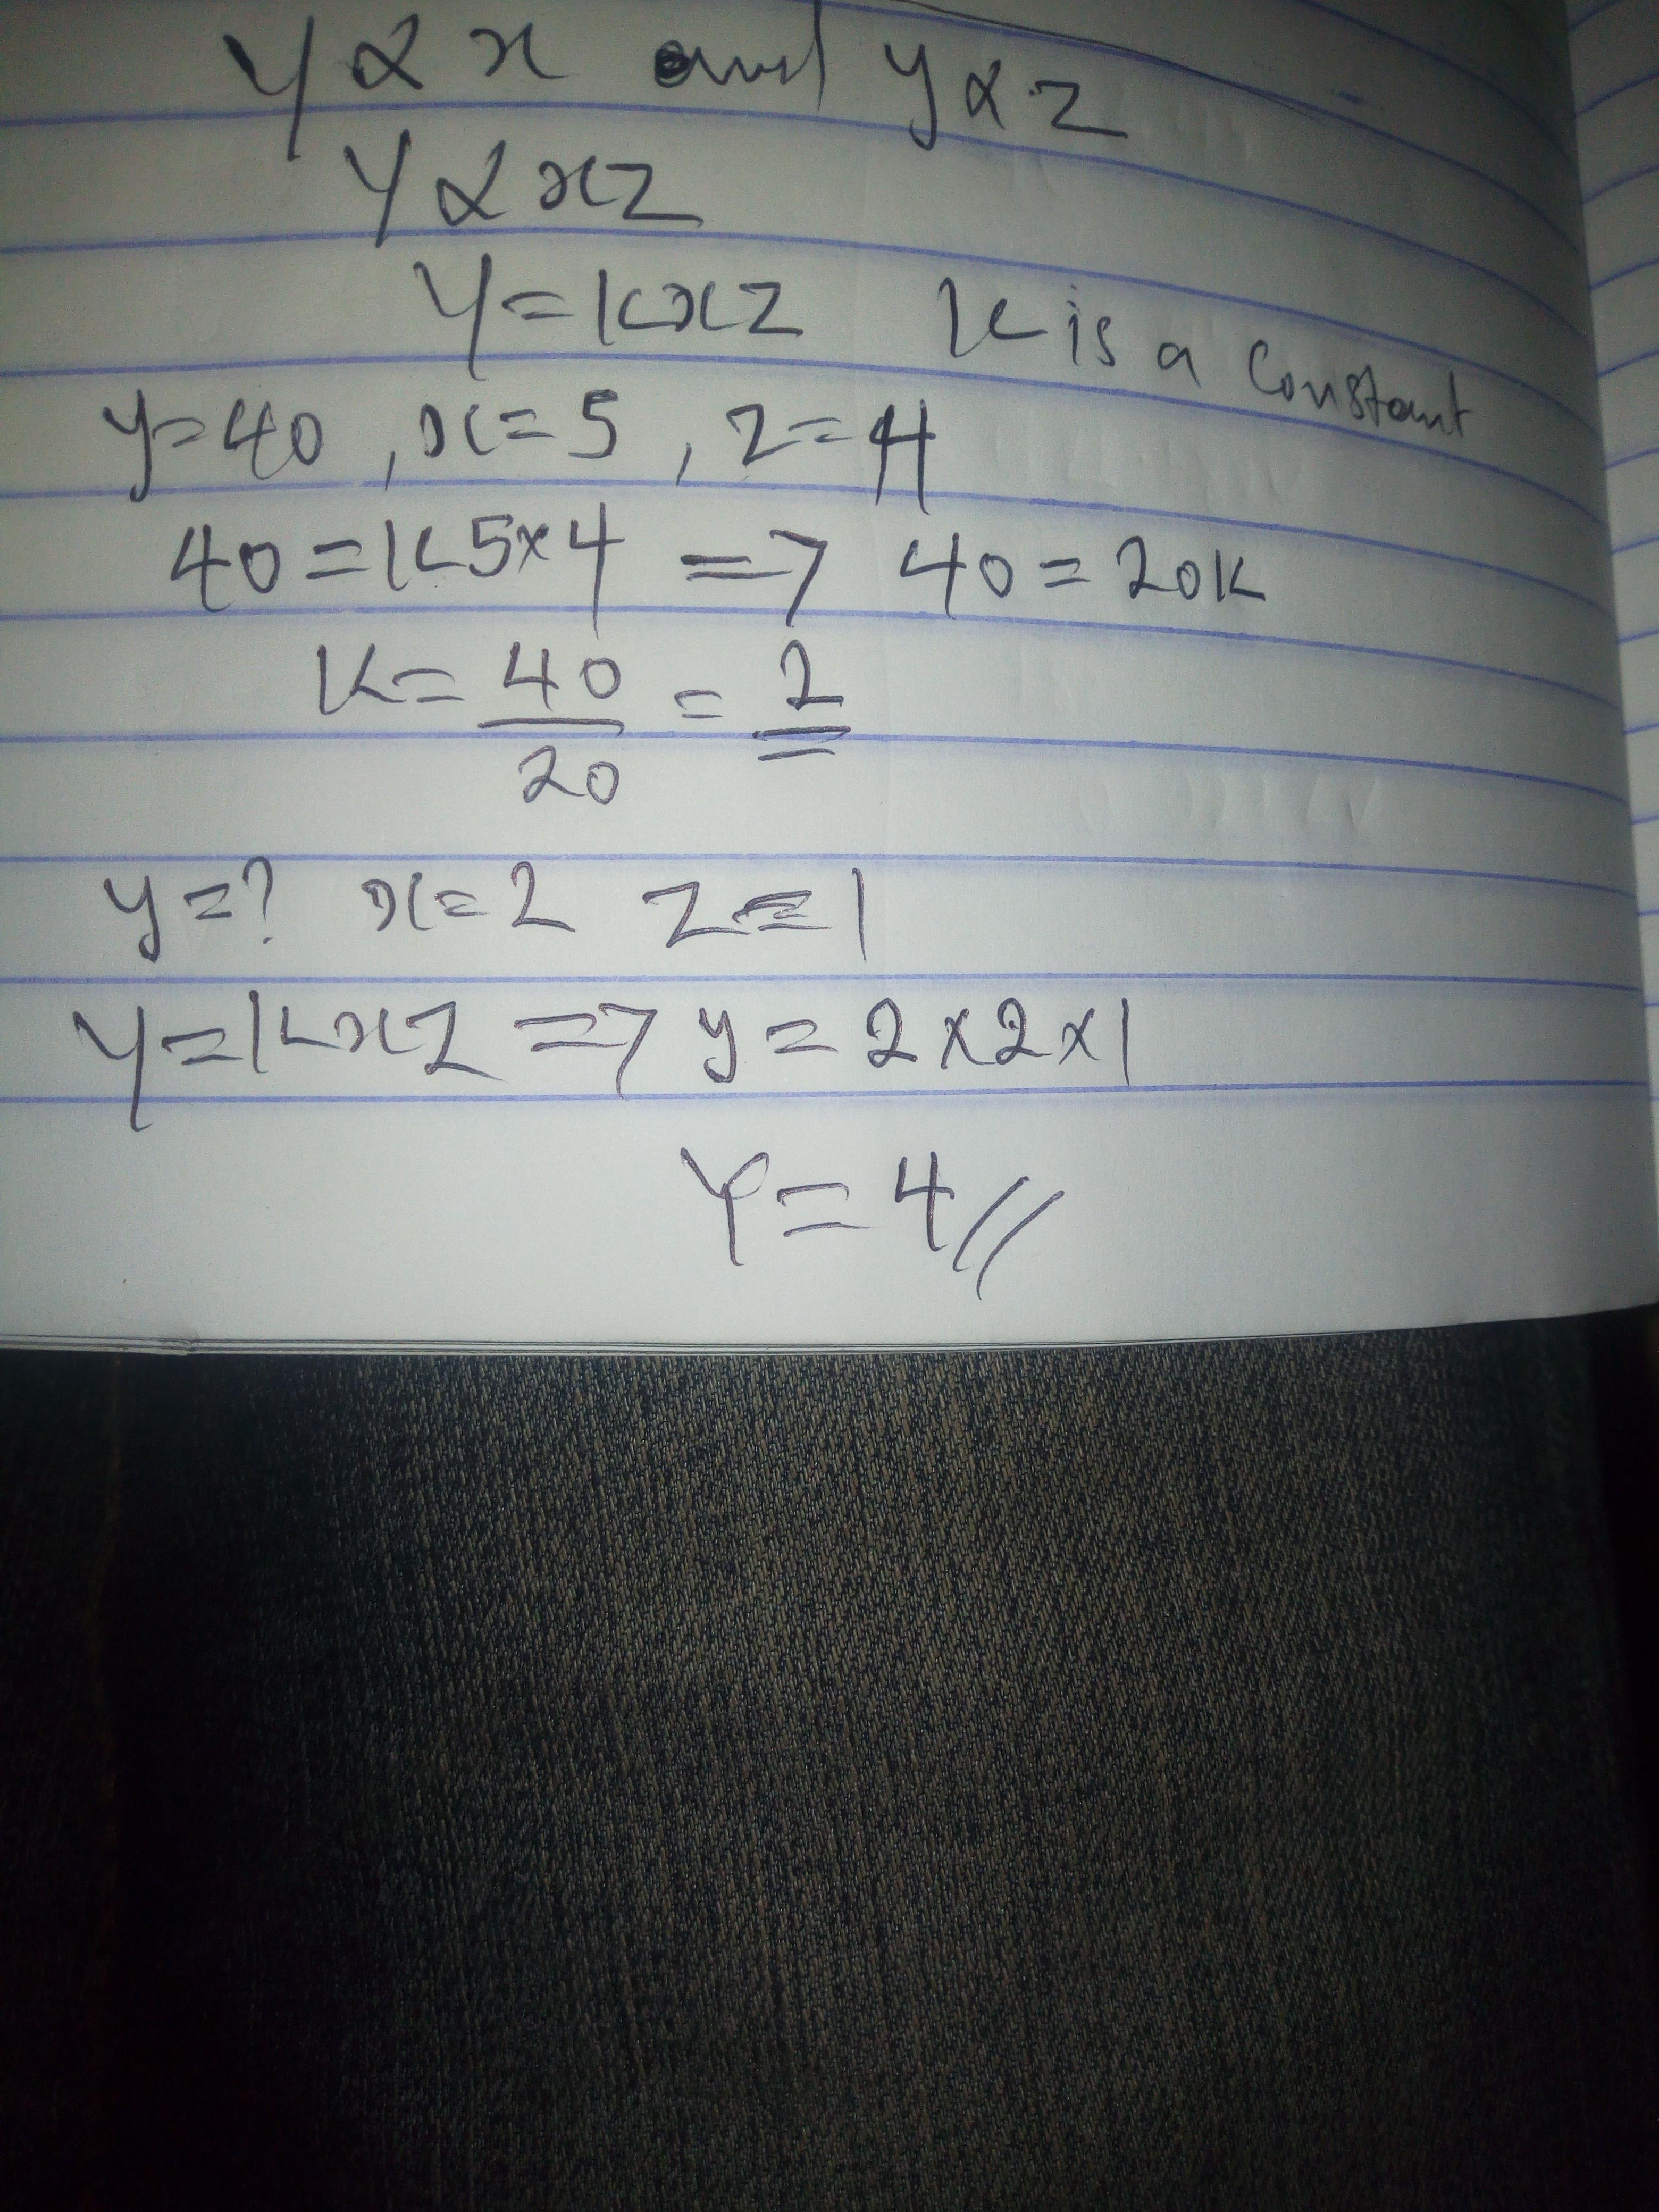 Y ∝ x and y ∝ z
Y ∝ xz
Y = kxz K is a constant
y = 40, x = 5, z = 4
40 = K5×4 => 40 = 20K
K = 40/20 = 2
y = ? x = 2 z = 1
Y = Kxz => y = 2×2×1
Y = 4//